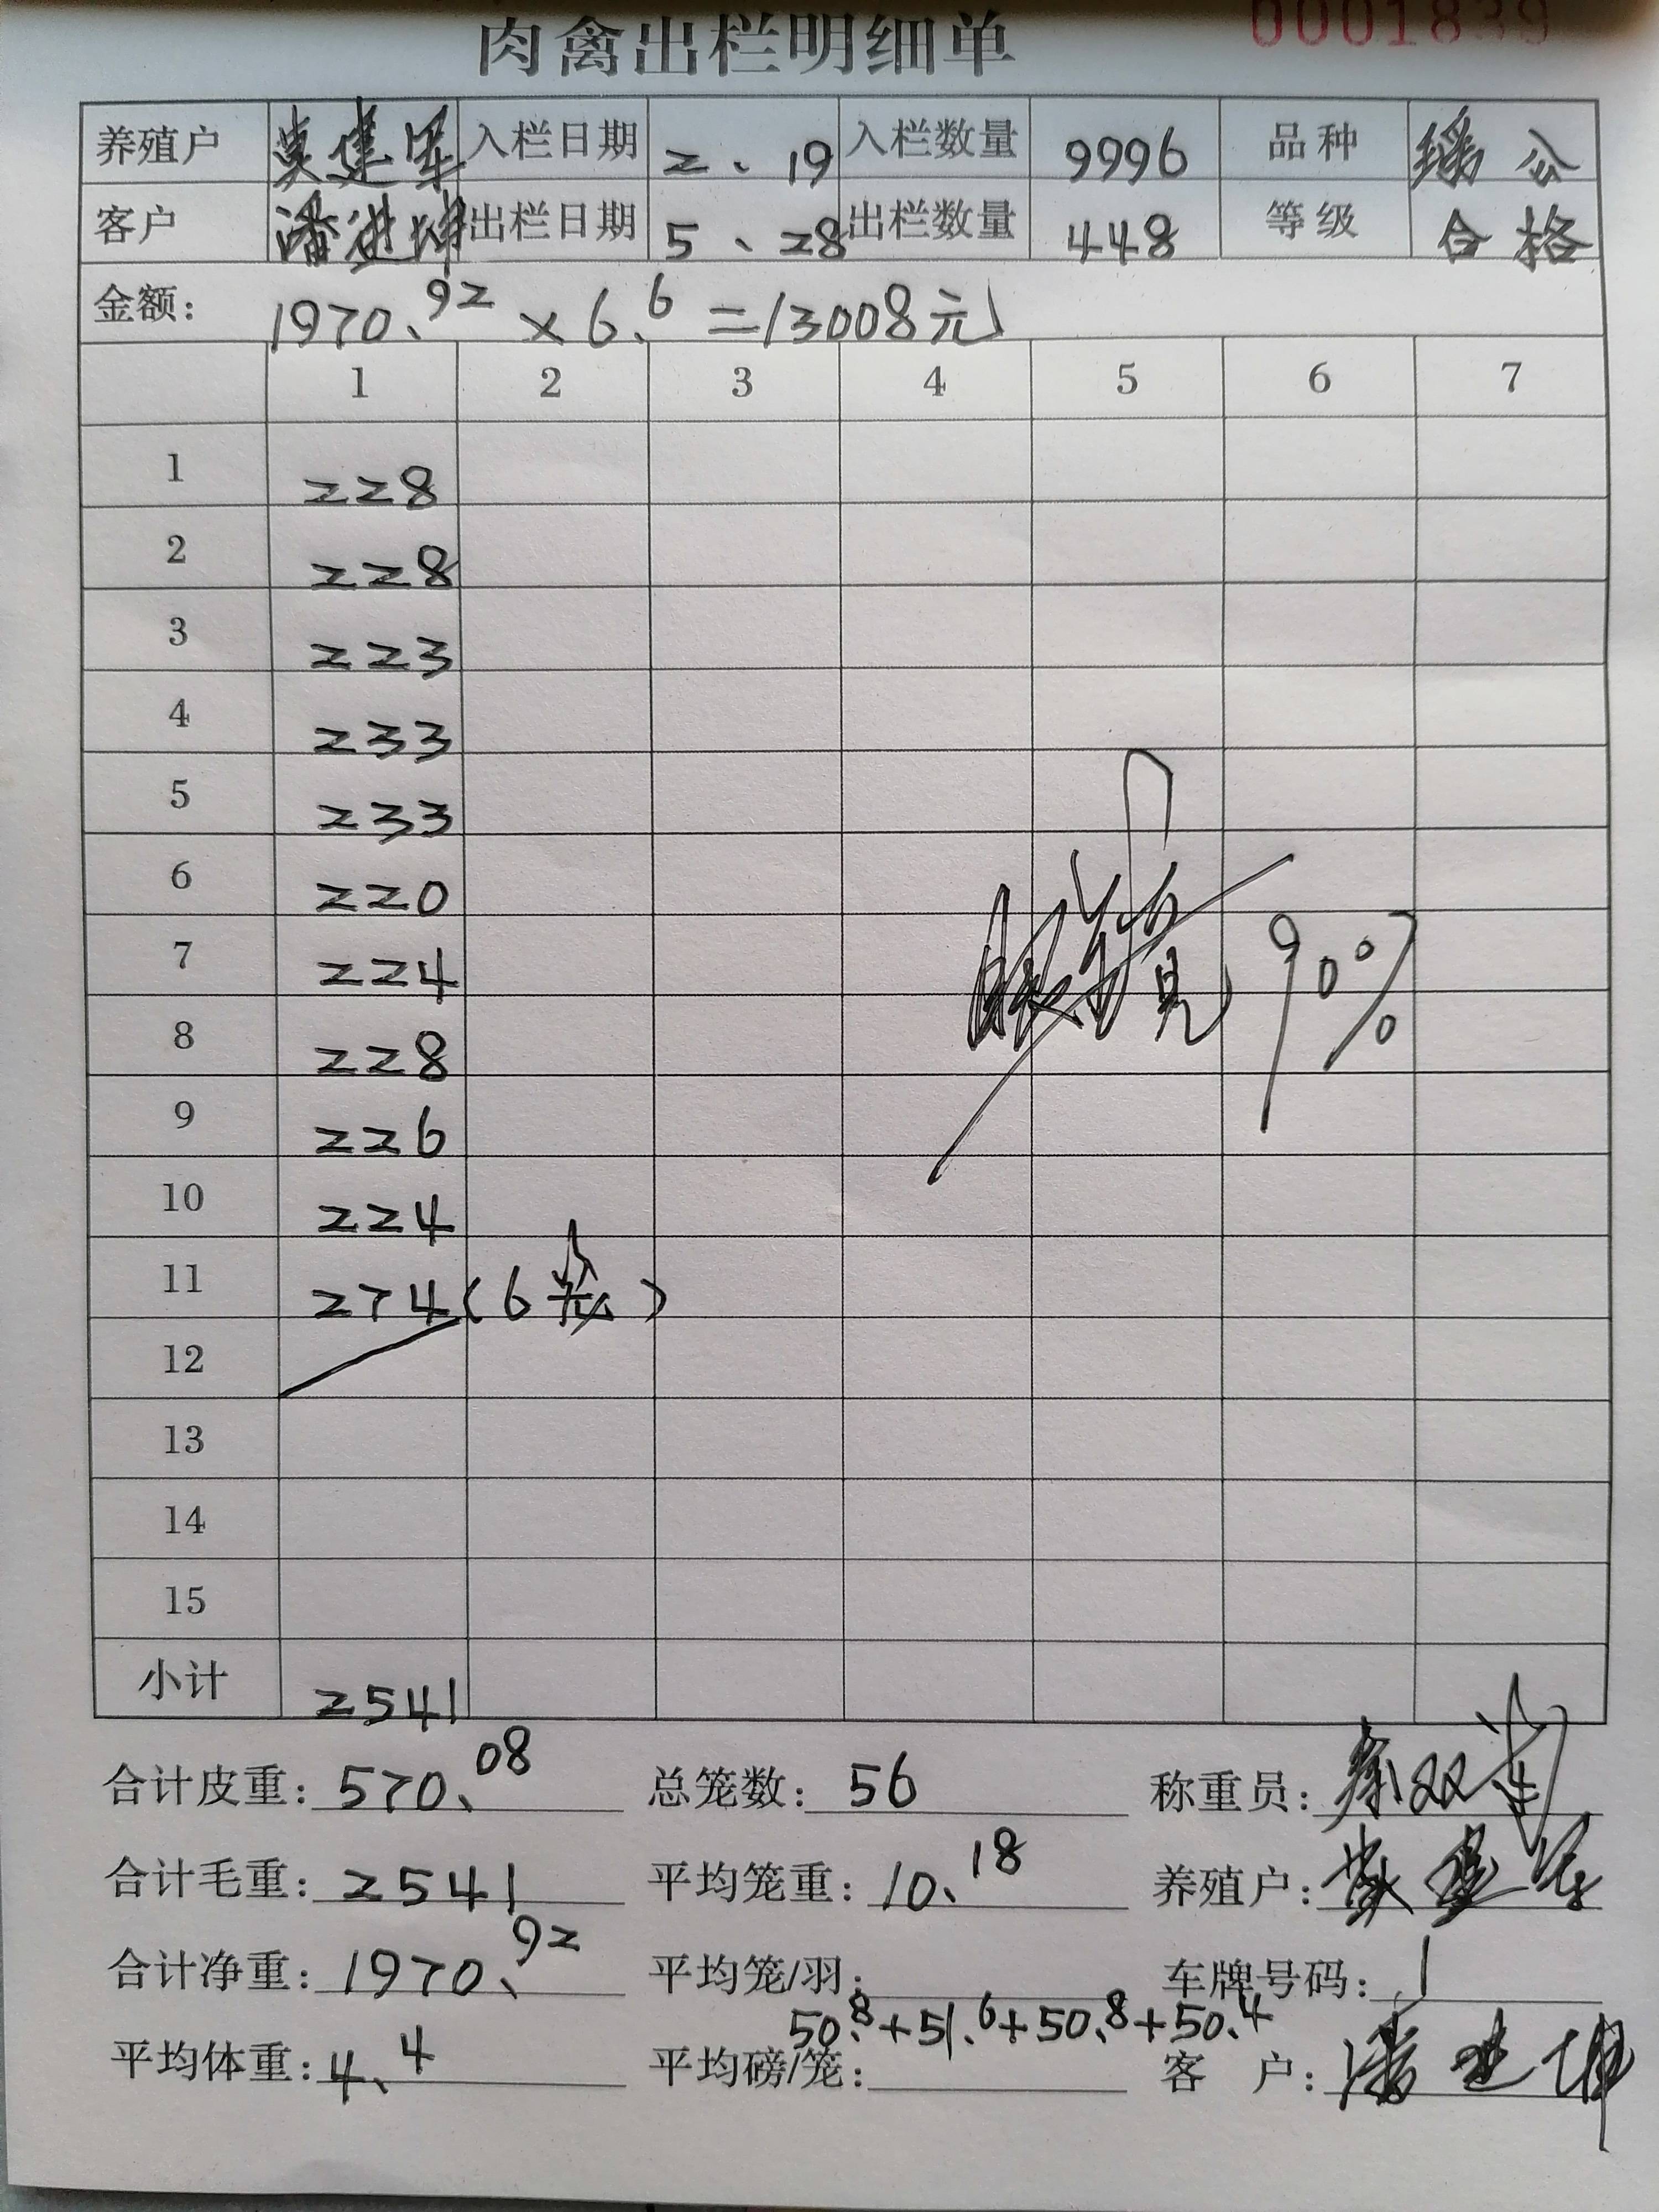 肉禽出栏明细单 0001839
养殖户 莫建军 入栏日期 2、19 入栏数量 9996 品种 瑶公
客户 潘进坤 出栏日期 5、28 出栏数量 448 等级 合格
金额: 1970.92 × 6.6 = 13008元
1 2 3 4 5 6 7
1 228
2 228
3 223
4 233
5 233
6 220
7 224
8 228
9 226
10 224
11 274 (6笼)
90%
12
13
14
15
小计 2541
合计皮重: 570.08 总笼数: 56 称重员:
合计毛重: 2541 平均笼重: 10.18 养殖户: 莫建军
合计净重: 1970.92 平均笼/羽: 车牌号码:
50.8+51.6+50.8+50.4
平均体重: 4.4 平均磅/笼: 客 户: 潘进坤